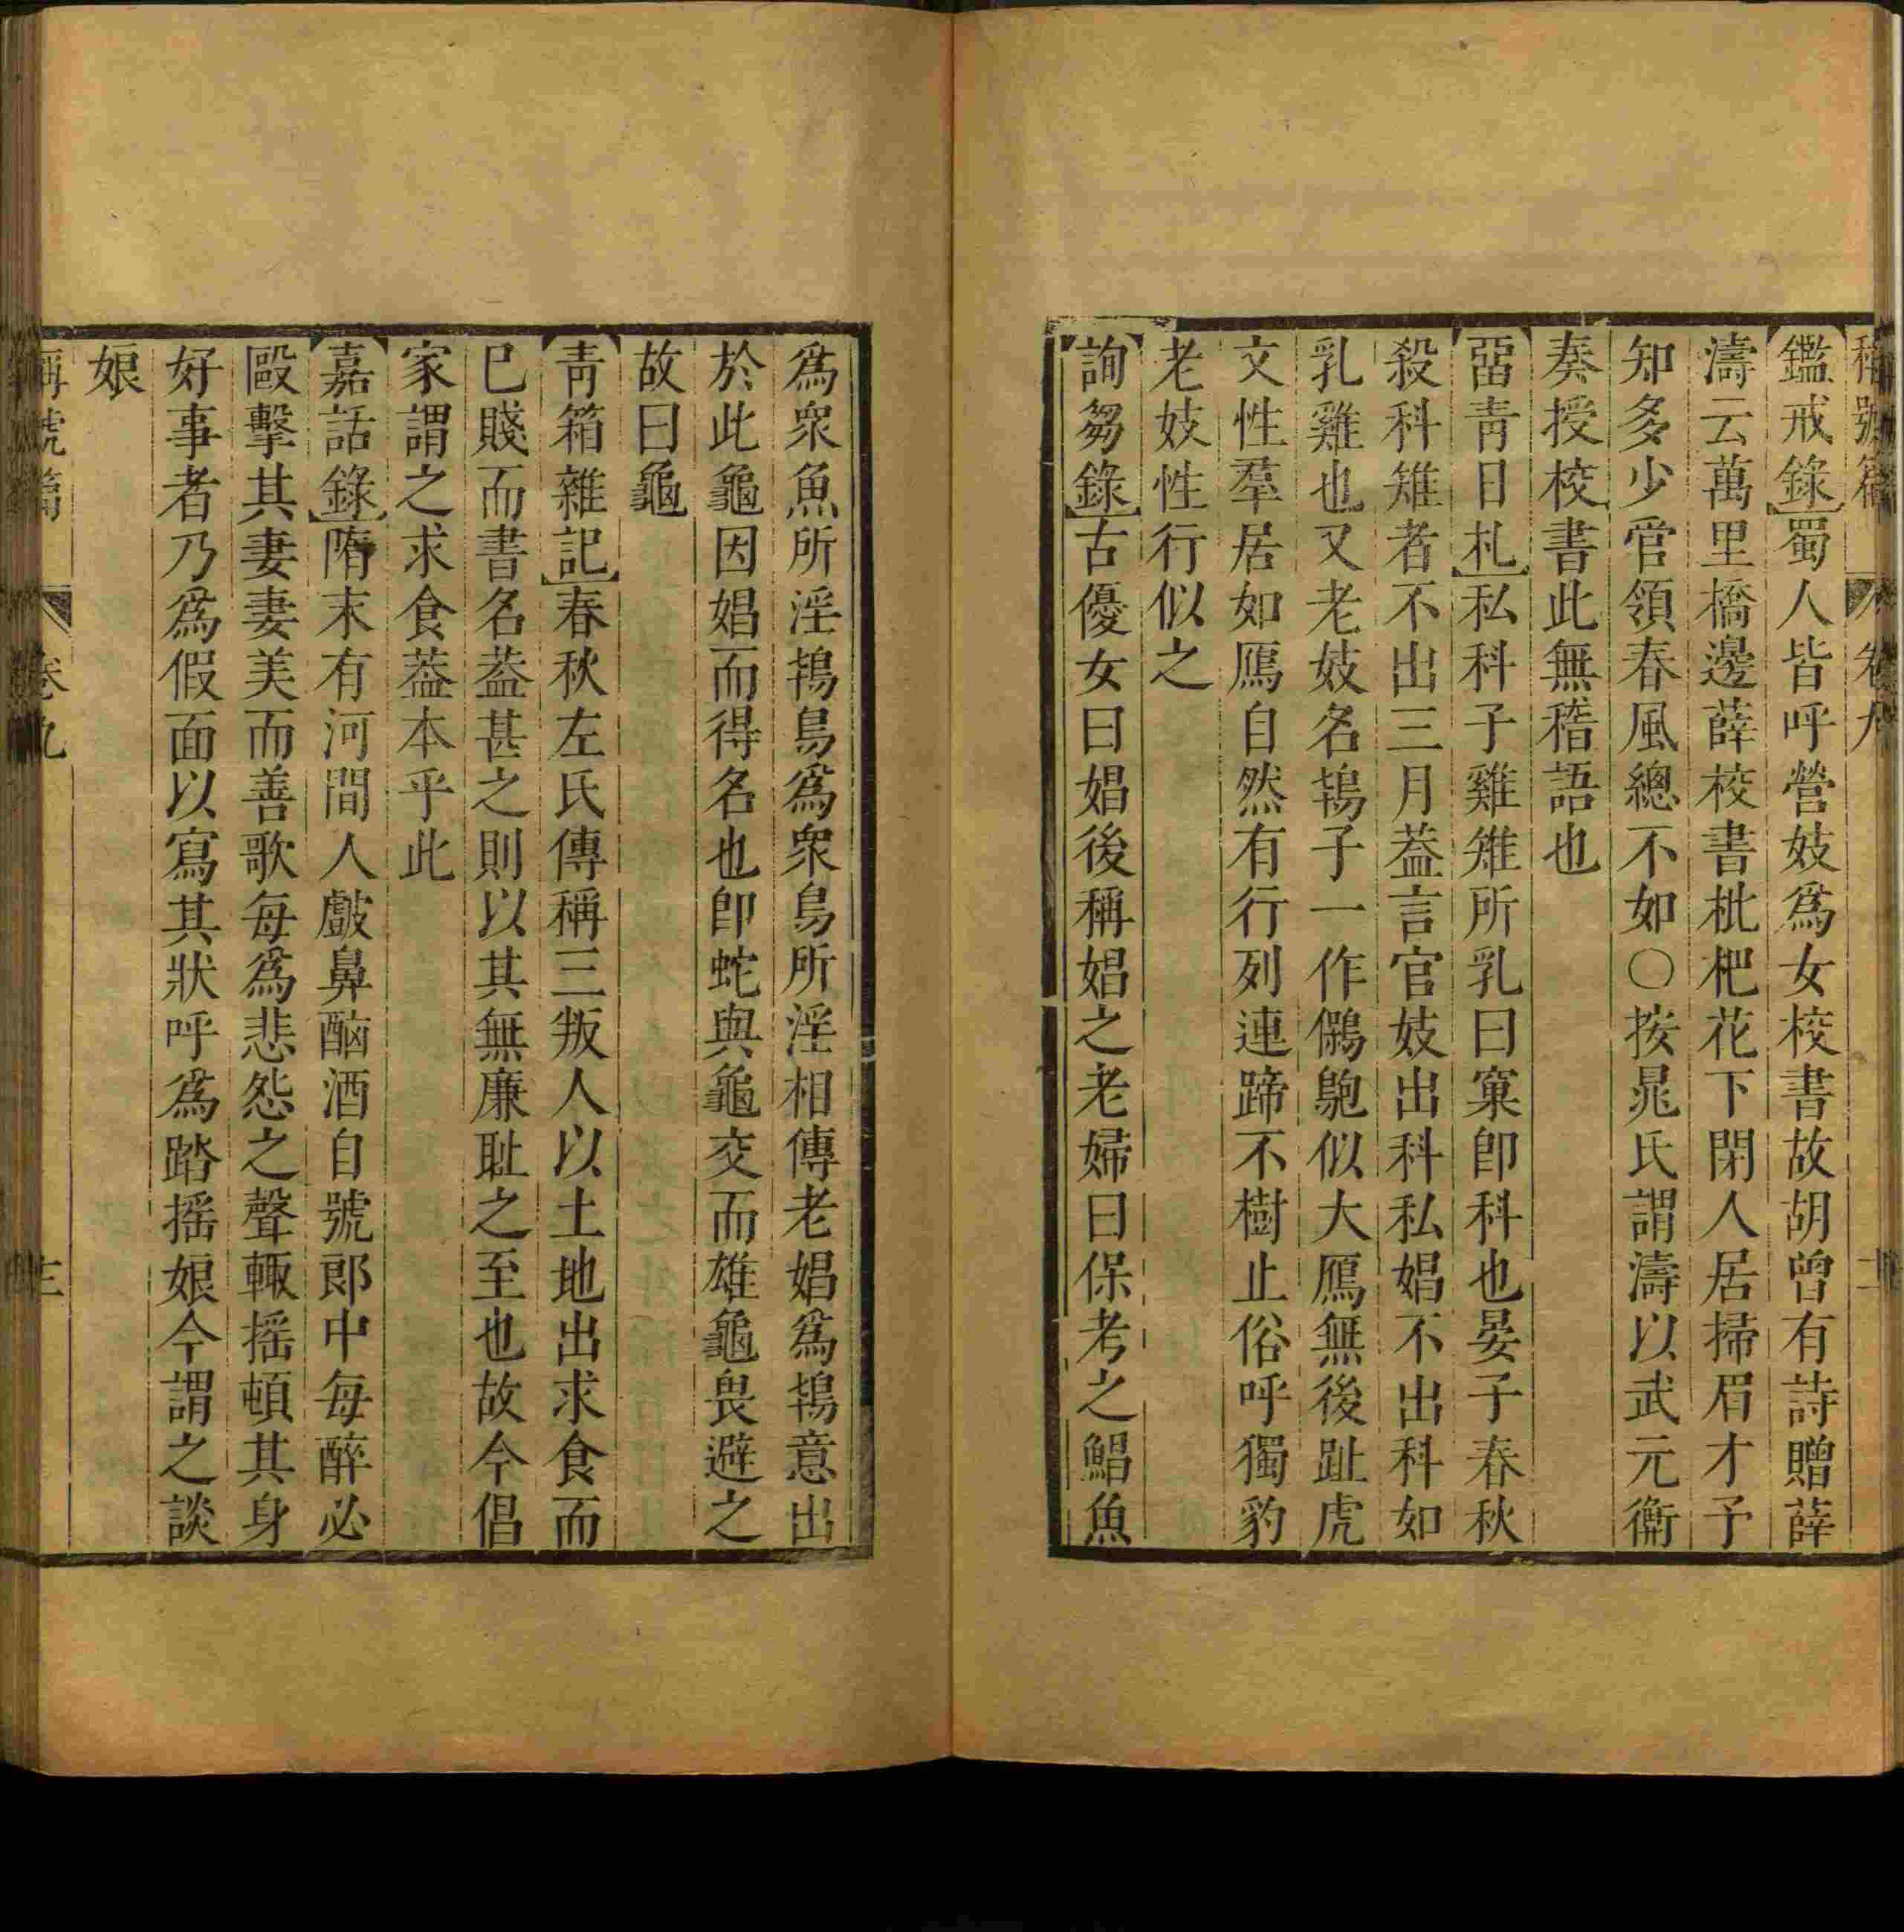 稱號篇 卷九
鑑戒錄蜀人皆呼營妓爲女校書故胡曾有詩贈薛
濤云萬里橋邊薛校書枇杷花下閉人居掃眉才子
知多少管領春風總不如○按晁氏謂濤以武元衡
奏授校書此無稽語也
嵒青日札私科子雞雉所乳曰窠卽科也晏子春秋
殺科雉者不出三月葢言官妓出科私娼不出科如
乳雞也又老妓名鴇子一作鸔鴕似大鴈無後趾虎
文性羣居如鴈自然有行列連蹄不樹止俗呼獨豹
老妓性行似之
詢芻錄古優女曰娼後稱娼之老婦曰保考之鯧魚
爲衆魚所淫鴇鳥爲衆鳥所淫相傳老娼爲鴇意出
於此龜因娼而得名也卽蛇與龜交而雄龜畏避之
故曰龜
靑箱雜記春秋左氏傳稱三叛人以土地出求食而
已賤而書名葢甚之則以其無廉耻之至也故今倡
家謂之求食葢本乎此
嘉話錄隋末有河間人齇鼻酗酒自號郞中每醉必
毆擊其妻妻美而善歌每爲悲怨之聲輙揺頓其身
好事者乃爲假面以寫其狀呼爲踏揺娘今謂之談
娘
稱號篇 卷九 三